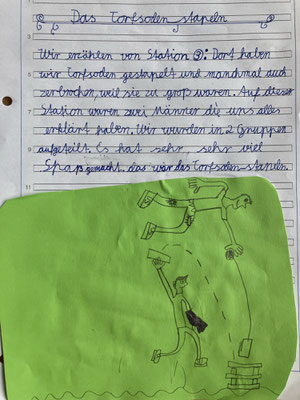 Das Torfsoden stapeln
Wir erzählen von Station 3: Dort haben
wir Torfsoden gestapelt und manchmal auch
zerbrochen, weil sie zu groß waren. Auf dieser
Station waren zwei Männer die uns alles
erklärt haben. Wir wurden in 2 Gruppen
aufgeteilt. Es hat sehr, sehr viel
Spaß gemacht. das war das Torfsoden-stapeln.